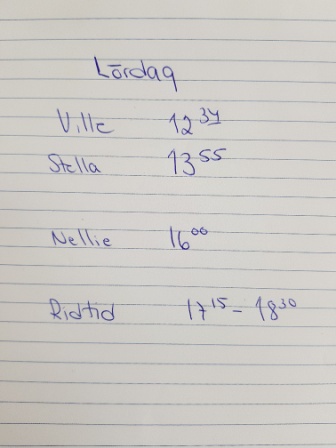 Lördag
Ville 12 34
Stella 13 55
Nellie 16 00
Ridtid 17 15 - 18 30